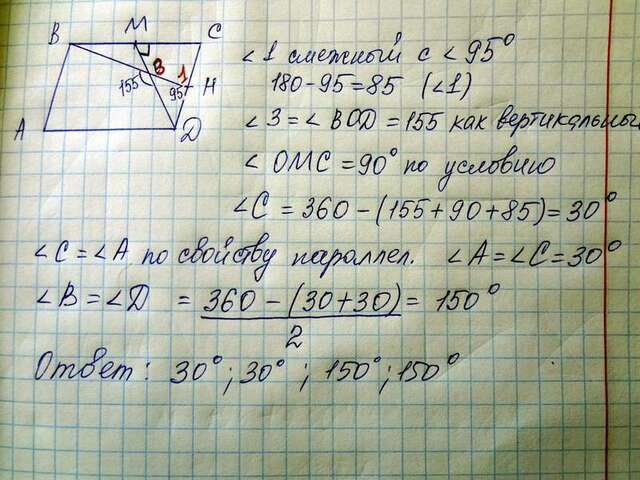 M
B C
3 1
155 95° H
A D
∠1 смежный с ∠95°
180-95=85 (∠1)
∠3=∠BOD=155 как вертикальные
∠OMC=90° по условию
∠C=360-(155+90+85)=30°
∠C=∠A по свойству пароллел. ∠A=∠C=30°
∠B=∠D = 360-(30+30) = 150°
2
Ответ: 30°; 30°; 150°; 150°